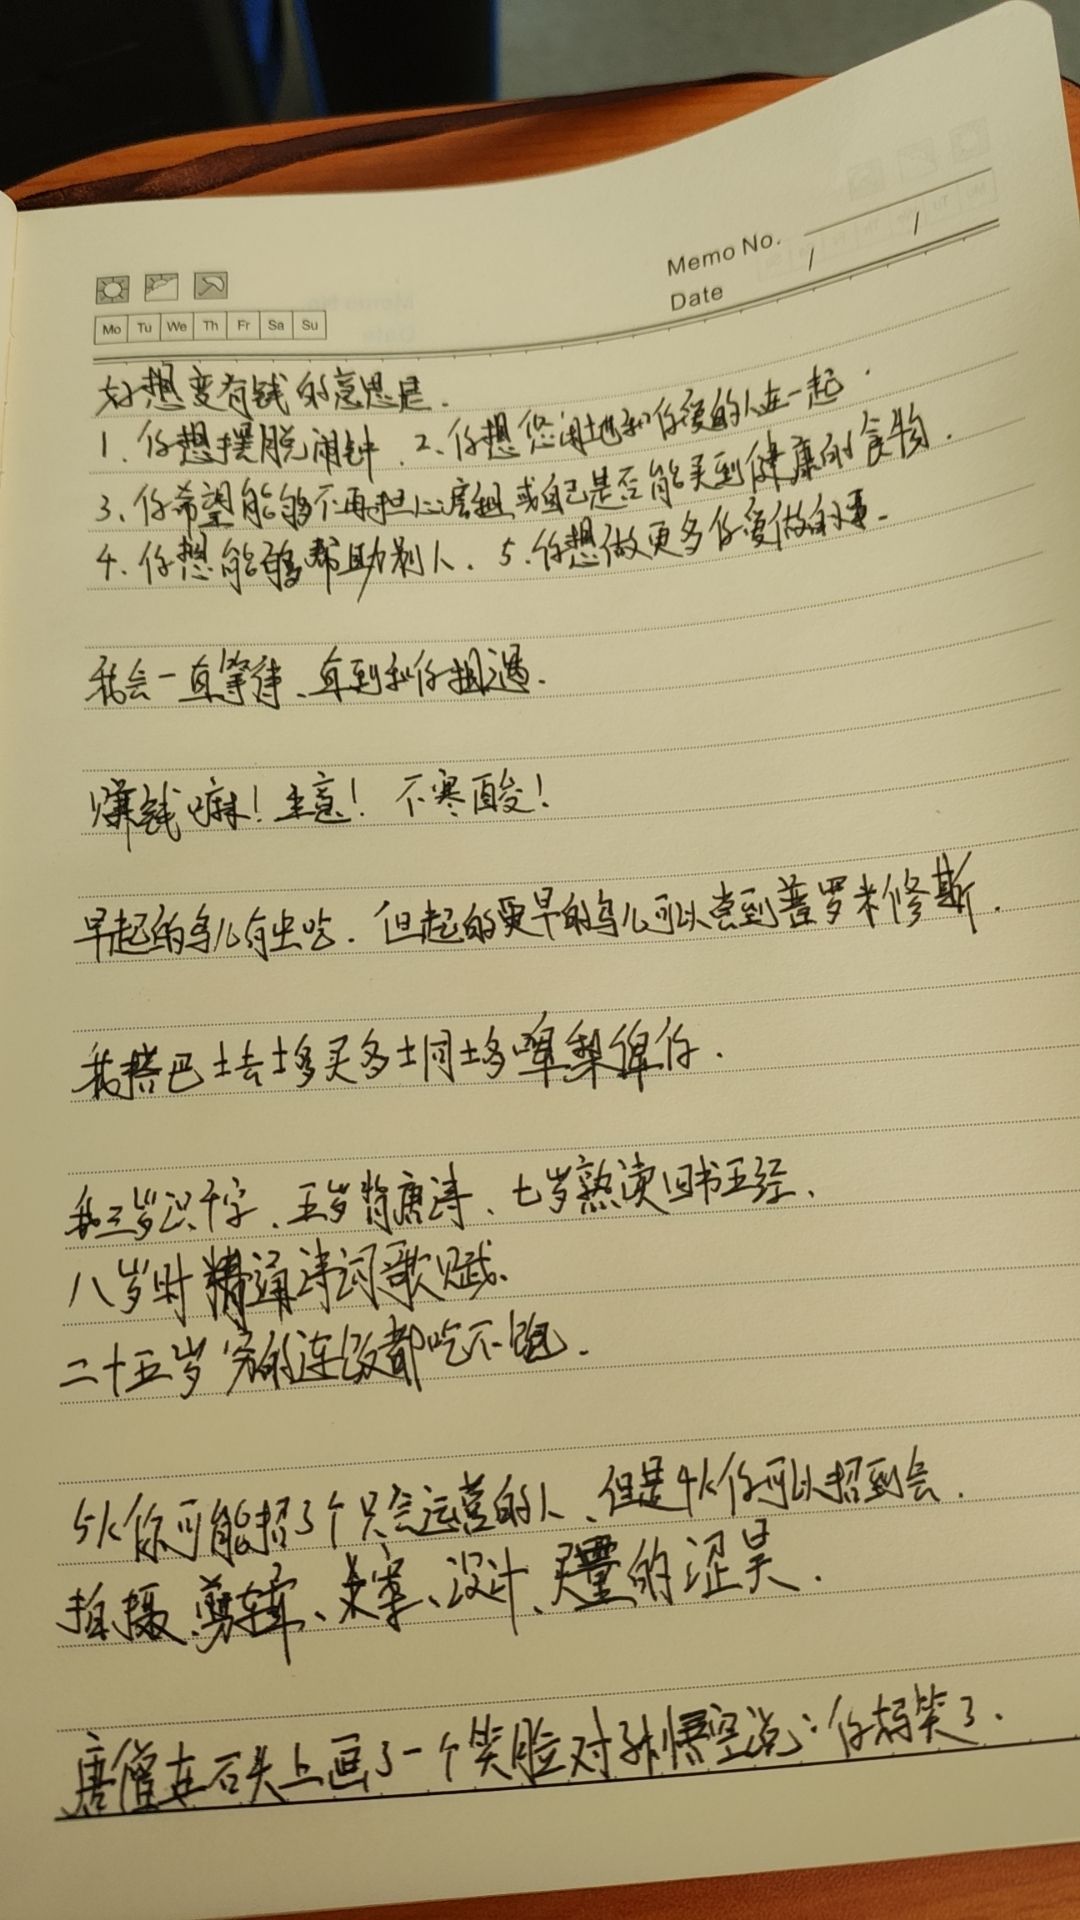 Memo No.
Date / /
Mo Tu We Th Fr Sa Su
好想变有钱的意思是.
1. 你想摆脱闹钟. 2. 你想悠闲地和你爱的人在一起.
3. 你希望能够不再担心房租或自己是否能买到健康的食物.
4. 你想能够帮助别人. 5. 你想做更多你爱做的事.
我会一直等待、直到和你相遇.
赚钱嘛! 生意! 不寒酸!
早起的鸟儿有虫吃. 但起的更早的鸟儿可以尝到普罗米修斯.
我搭巴士去士多买多士同士多啤梨俾你.
我三岁识千字、五岁背唐诗、七岁熟读四书五经、
八岁时精通诗词歌赋、
二十五岁穷的连饭都吃不饱.
5k你可能招了个只会运营的人、但是4k你可以招到会.
拍摄、剪辑、文案、设计、的涩昊.
唐僧在石头上画了一个笑脸对孙悟空说: 你妈笑了.